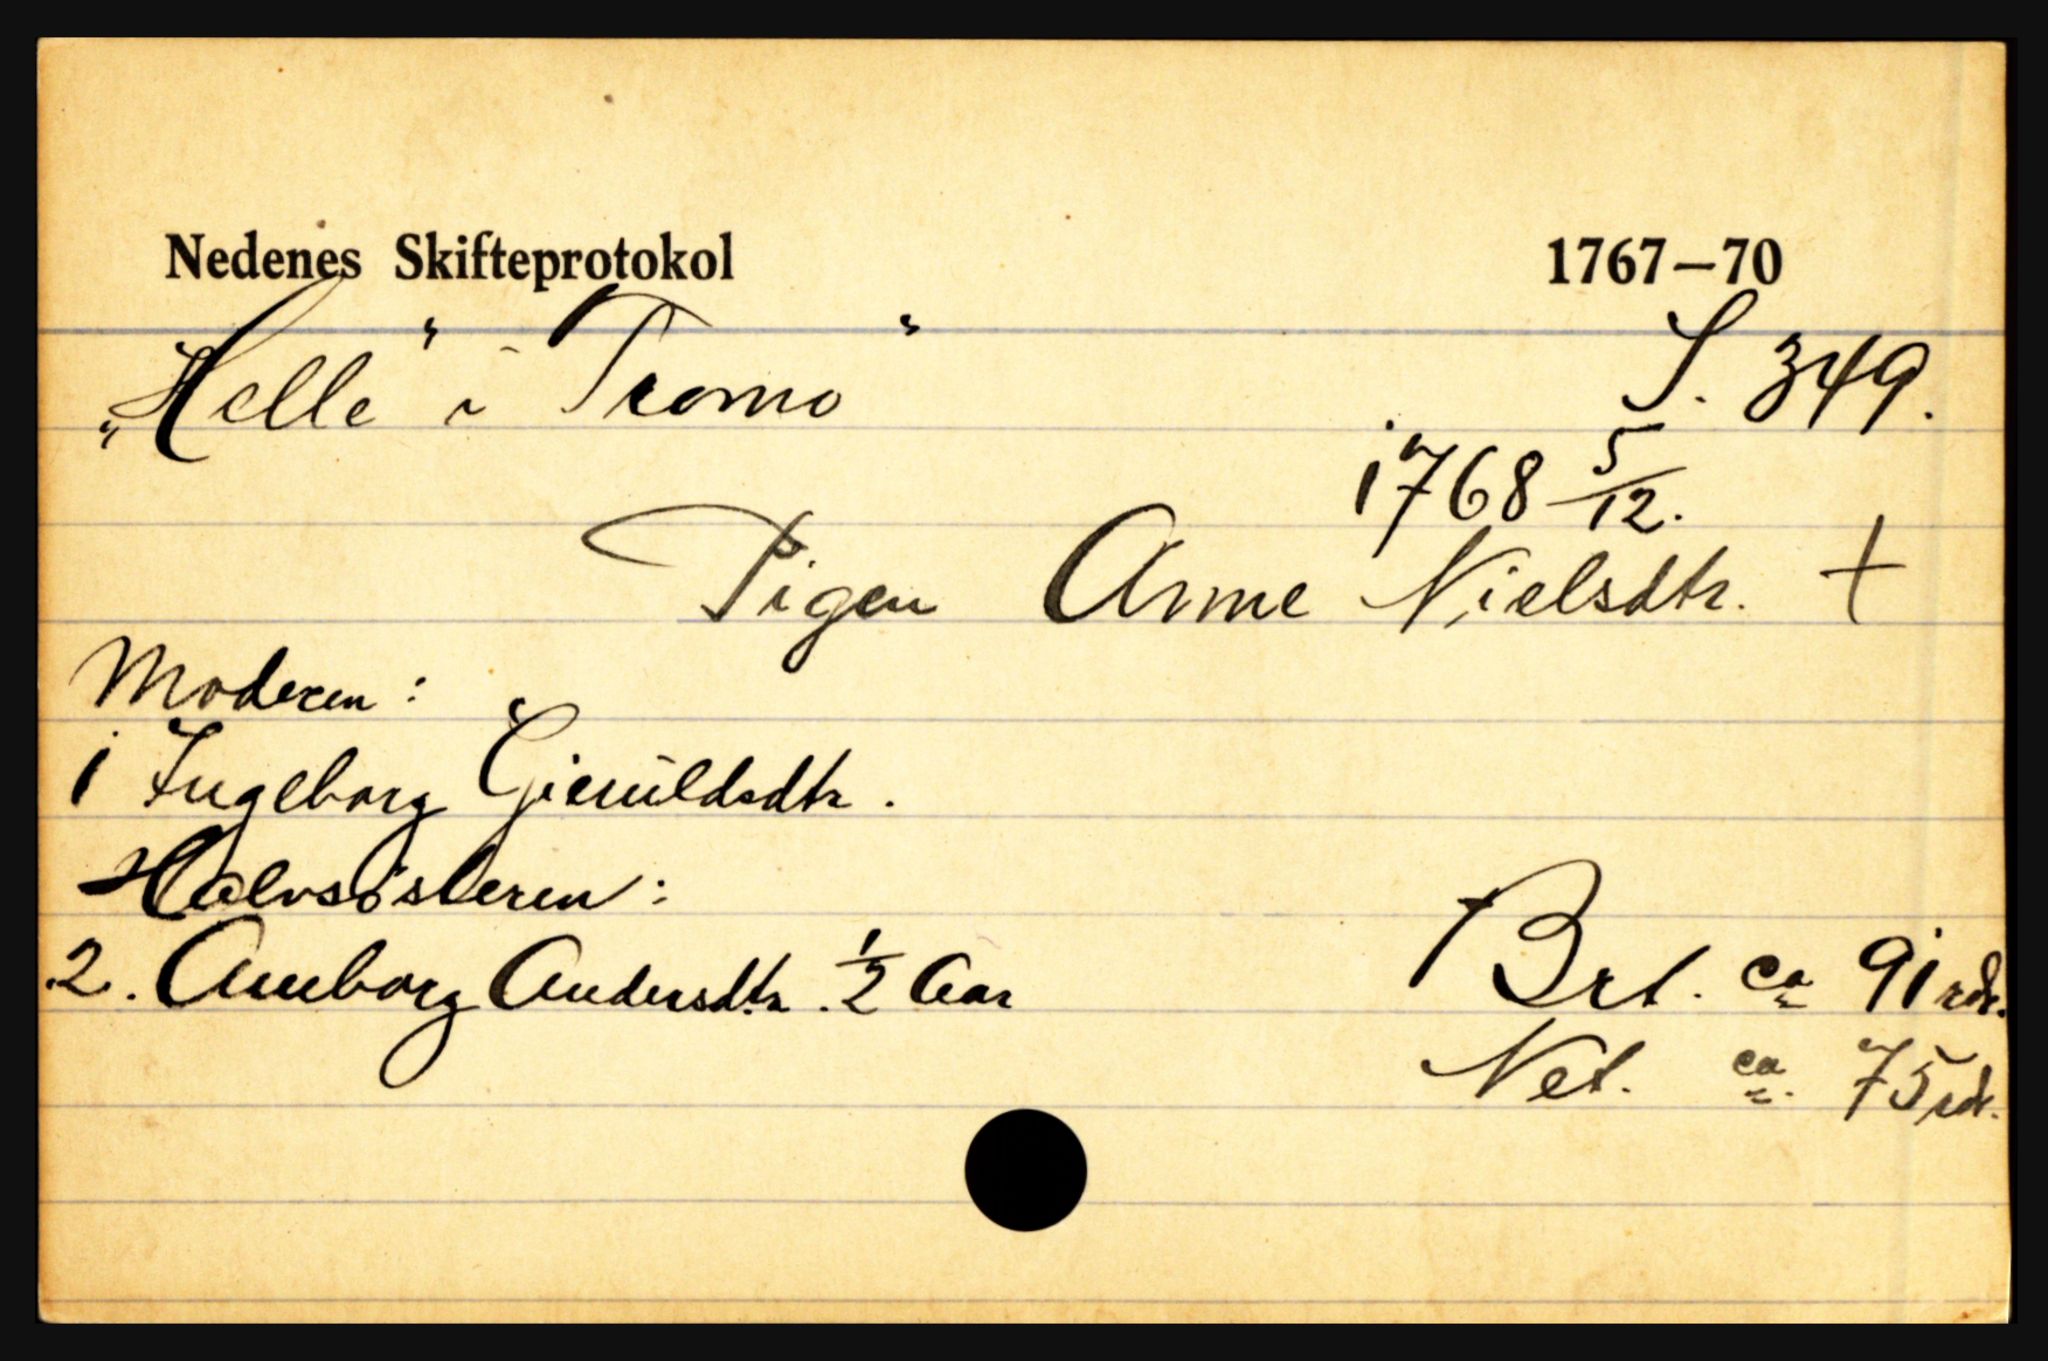 Nedenes Skifteprotokol 1767—70
„Helle" i Tromo" S. 349.
1768 5/12.
Pigen Anne Nielsdtr. +
Moderen:
1 Ingeborg Gieruldsdtr.
Halvsösteren:
2. Aunborg Andersdtr. 1/2 Aar
Brt. ca 91 rdr.
Net. ca. 75 rdr.